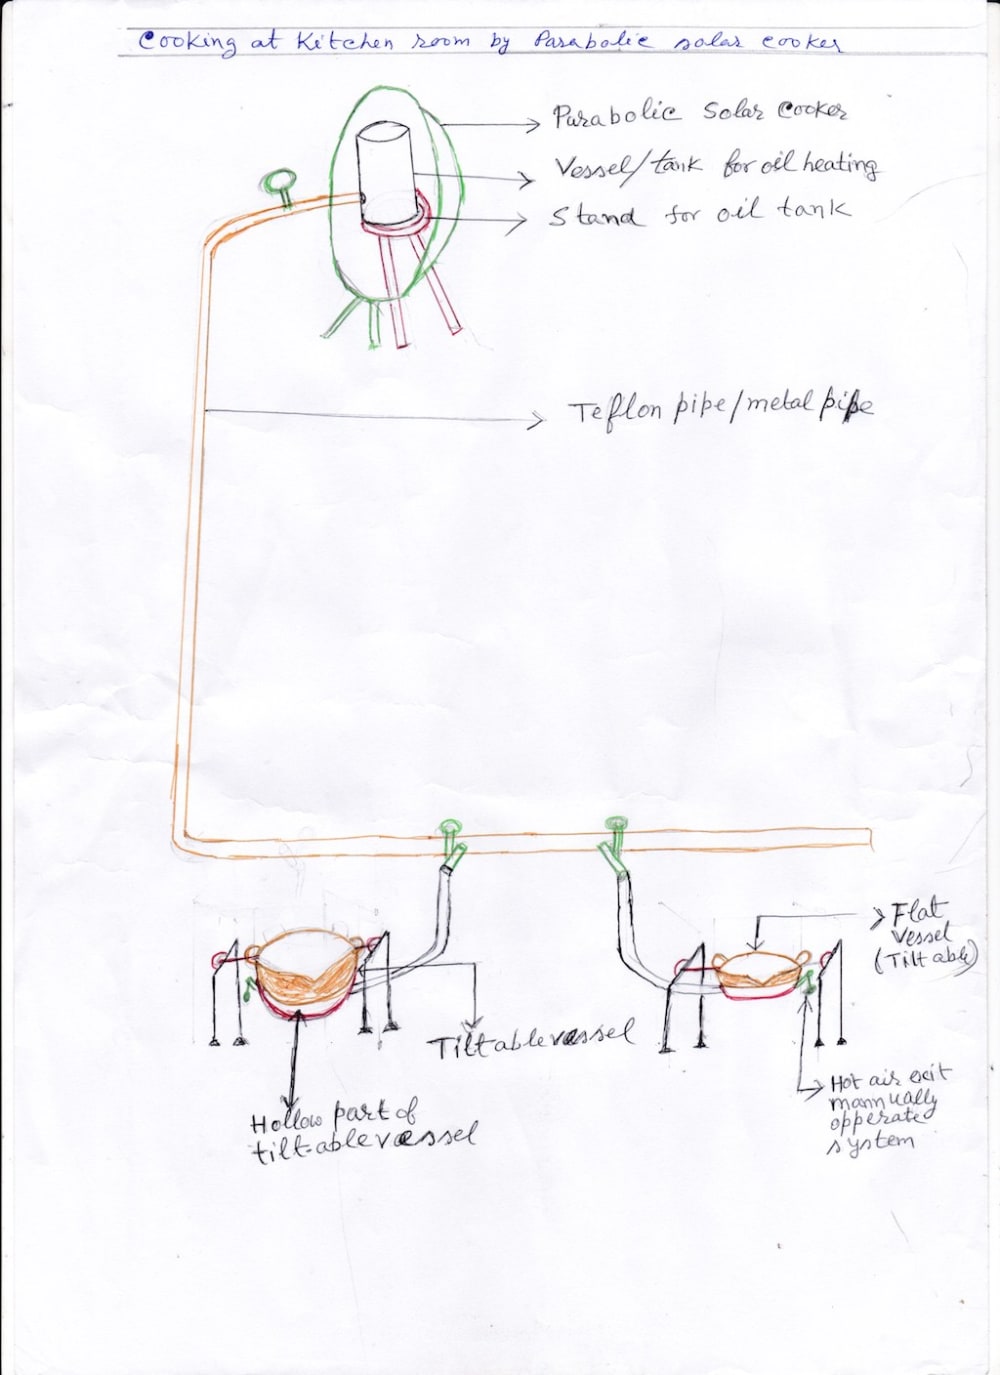 Cooking at Kitchen room by Parabolic solar cooker
Parabolic Solar Cooker
Vessel/tank for oil heating
Stand for oil tank
Teflon pipe/metal pipe
Flat
Vessel
(Tiltable)
Tiltable vessel
Hot air exit
mannually
opperate
system
Hollow part of
tiltable vessel